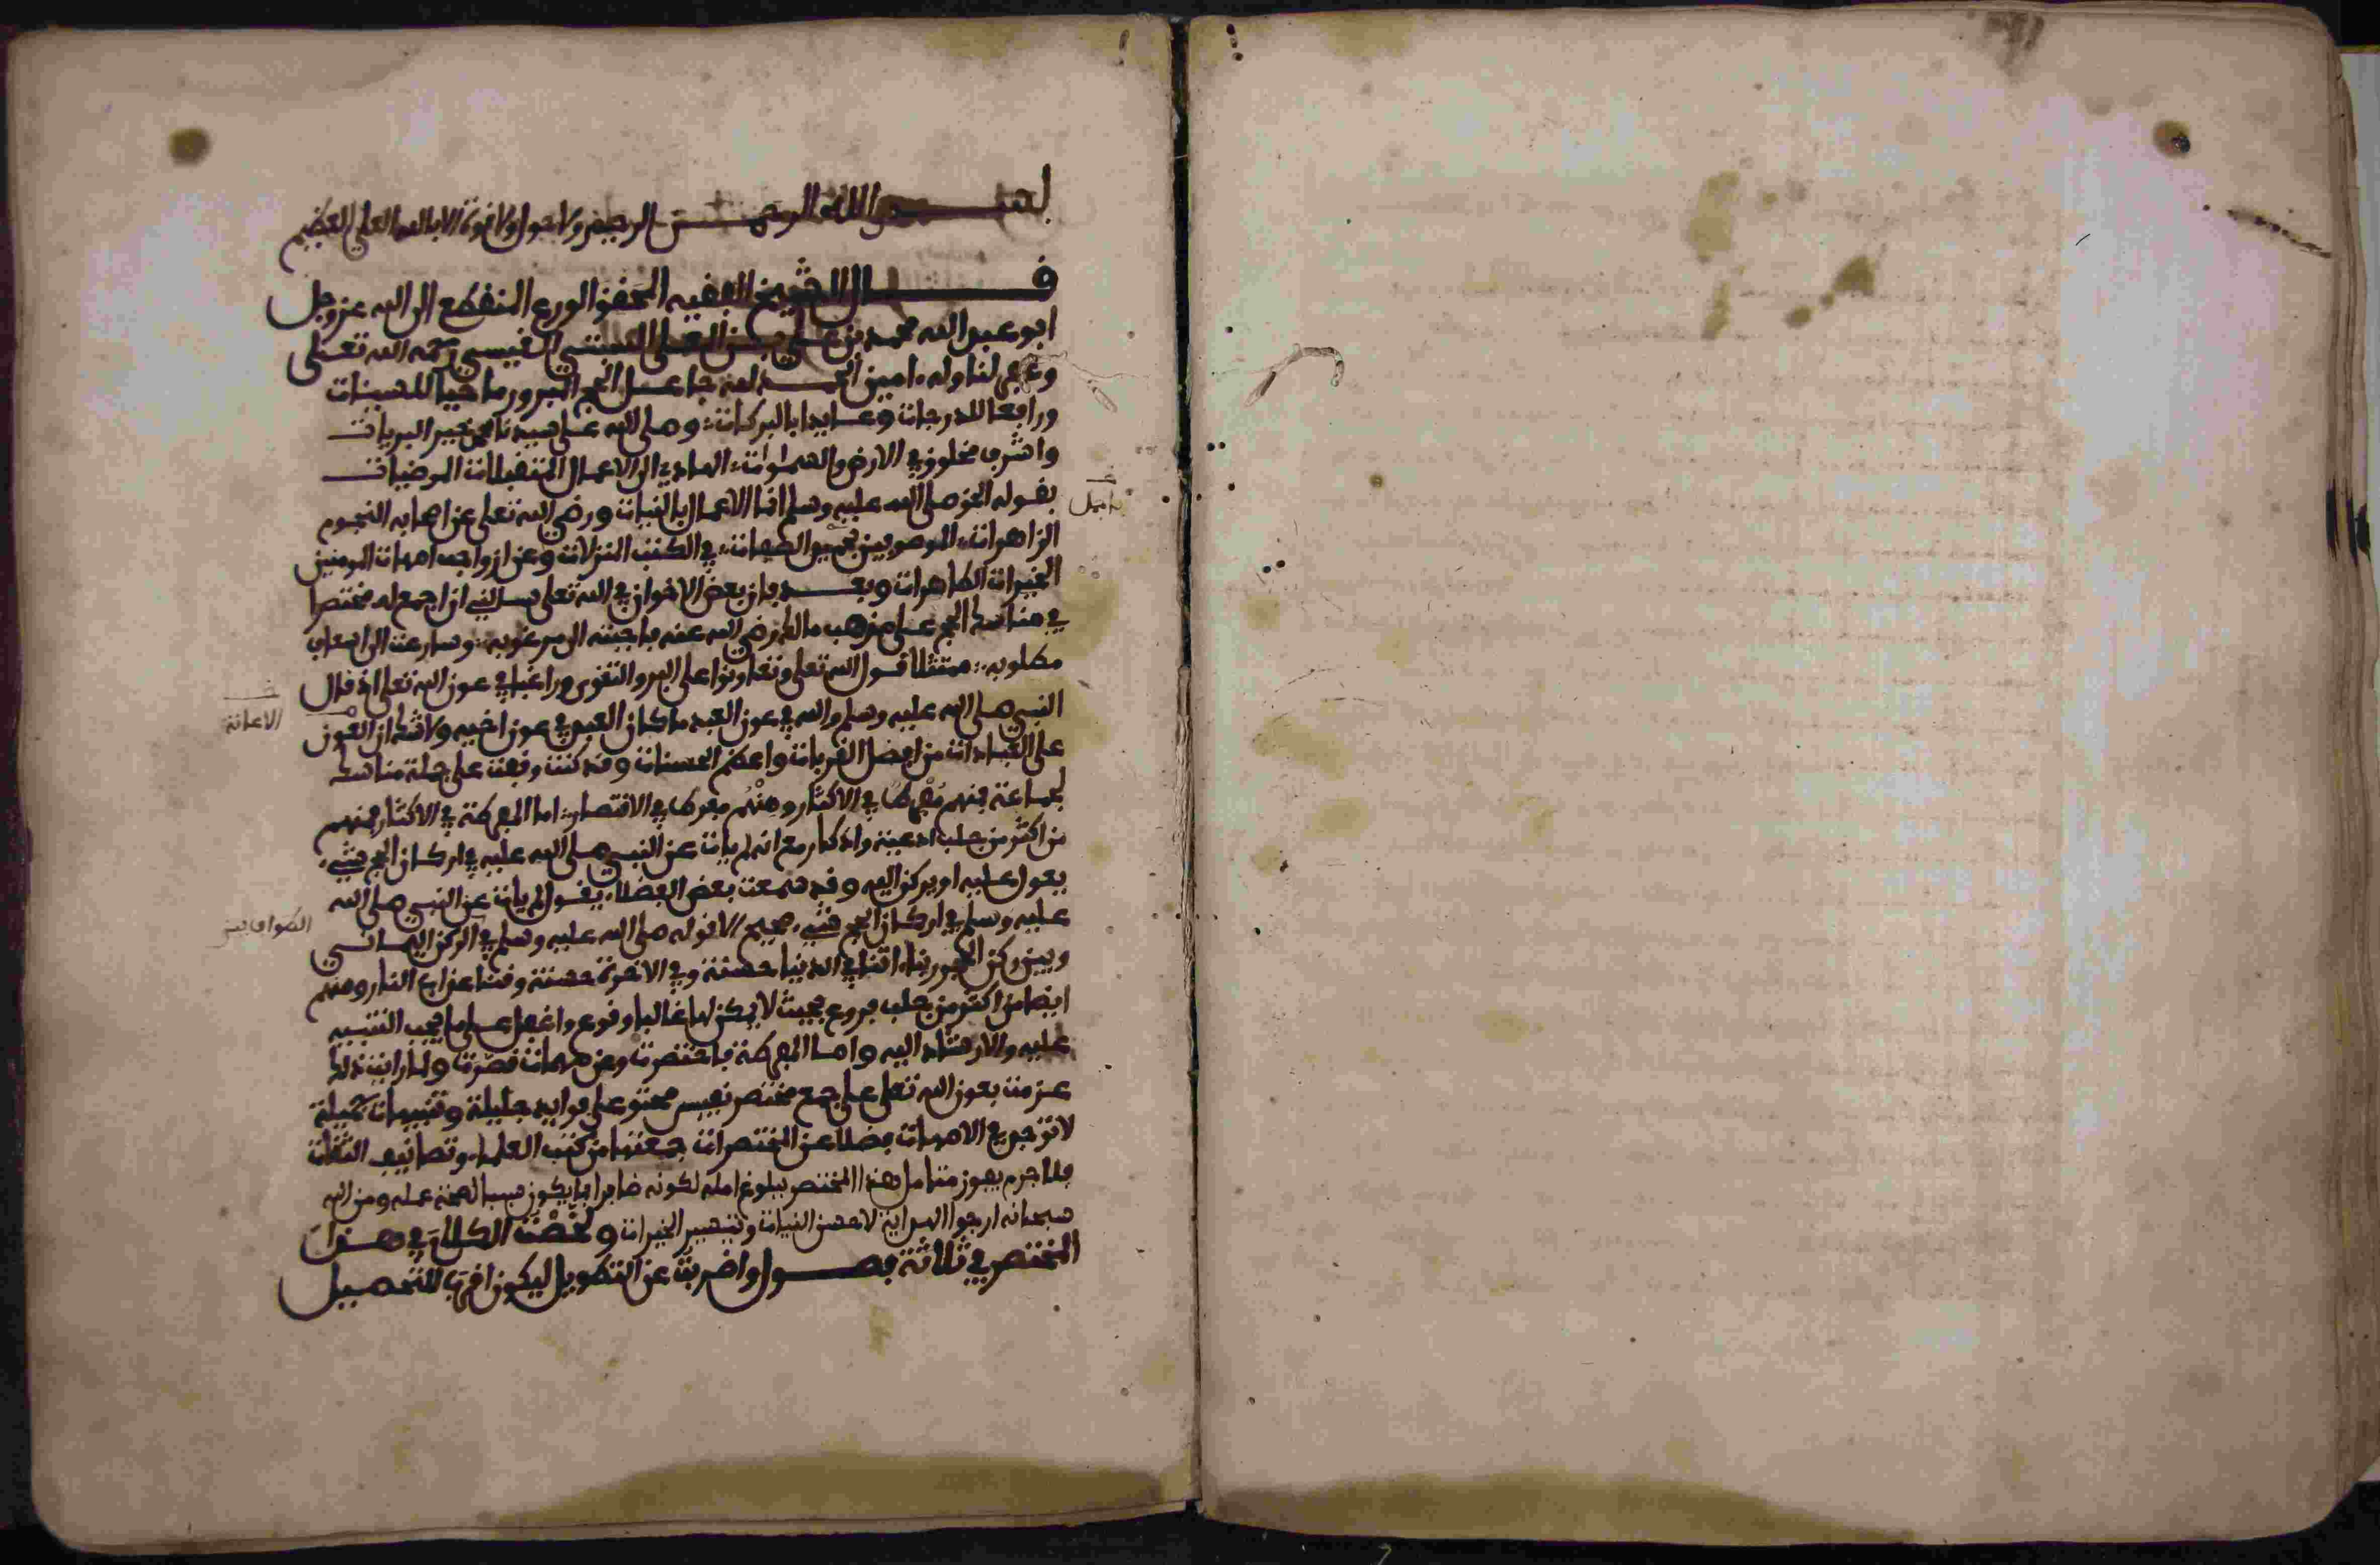 بسم الله الرحمن الرحيم ولا حول ولا قوة الا بالله العلي العظيم
قال الشيخ الفقيه المحقق الورع المنقطع الى الله عز وجل
ابو عبد الله محمد بن علي بن المعلى السبتي القيسي رحمه الله تعلى
وغفر لنا وله امين الحمد لله جاعل الحج المبرور ماحيا للسيئات
ورافعا للدرجات وعايدا بالبركات وصلى الله على سيدنا محمد خير البريات
واشرف مخلوق في الارض والسموات الهادي الى الاعمال المتقبلات المرضيات
بقوله الحق صلى الله عليه وسلم انما الاعمال بالنيات ورضي الله تعلى عن اصحابه النجوم
الزاهرات الموصوفين بجميل الصفات في الكتب المنزلات وعن ازواجه امهات المومنين
الخيرات الطاهرات وبعد فان بعض الاخوان في الله تعلى سالني ان اجمع له مختصرا
في مناسك الحج على مذهب مالك رضي الله عنه فاجبته الى مرغوبه وسارعت الى اسعاف
مطلوبه ممتثلا قول الله تعلى وتعاونوا على البر والتقوى وراغبا في عون الله تعلى اذ قال
النبي صلى الله عليه وسلم والله في عون العبد ما كان العبد في عون اخيه ولا شك ان العون
الاعانة
على العبادات من افضل القربات واعظم الحسنات وقد كنت وقفت على جملة مناسك
لجماعة فمنهم مفرط في الاكثار ومنهم مفرط في الاقتصار اما المفرطة في الاكثار فمنهم
من اكثر من جلب ادعية واذكار مع انه لم يات عن النبي صلى الله عليه في اركان الحج شيء
يعول عليه او يركن اليه وقد سمعت بعض الفضلاء يقول لم يات عن النبي صلى الله
عليه وسلم في اركان الحج شيء صحيح الا قوله صلى الله عليه وسلم في الركن اليماني
الطواف بين
وبين ركن الحجر ربنا اتنا في الدنيا حسنة وفي الاخرة حسنة وقنا عذاب النار ومنهم
ايضا من اكثر من جلب فروع بحيث لا يمكن لها غالبا وقوع واغفل على ما يجب التنبيه
عليه والارشاد اليه واما المفرطة فاختصرت وعن مهمات قصرت ولما رايت ذلك
عزمت بعون الله تعلى على جمع مختصر نفيس محتو على فوايد جليلة وتنبيهات جميلة
لا توجد في الامهات فضلا عن المختصرات جمعتها من كتب العلماء وتصانيف الثقات
فلا جرم يفوز متامل هذا المختصر ببلوغ امله لكونه ظافرا بما يكون سببا لصحة عمله ومن الله
سبحانه ارجوا الهداية لاحسن النيات وتيسير الخيرات ولخصت الكلام في هذا
المختصر في ثلاثة فصول واضربت عن التطويل ليكون اقرب للتحصيل